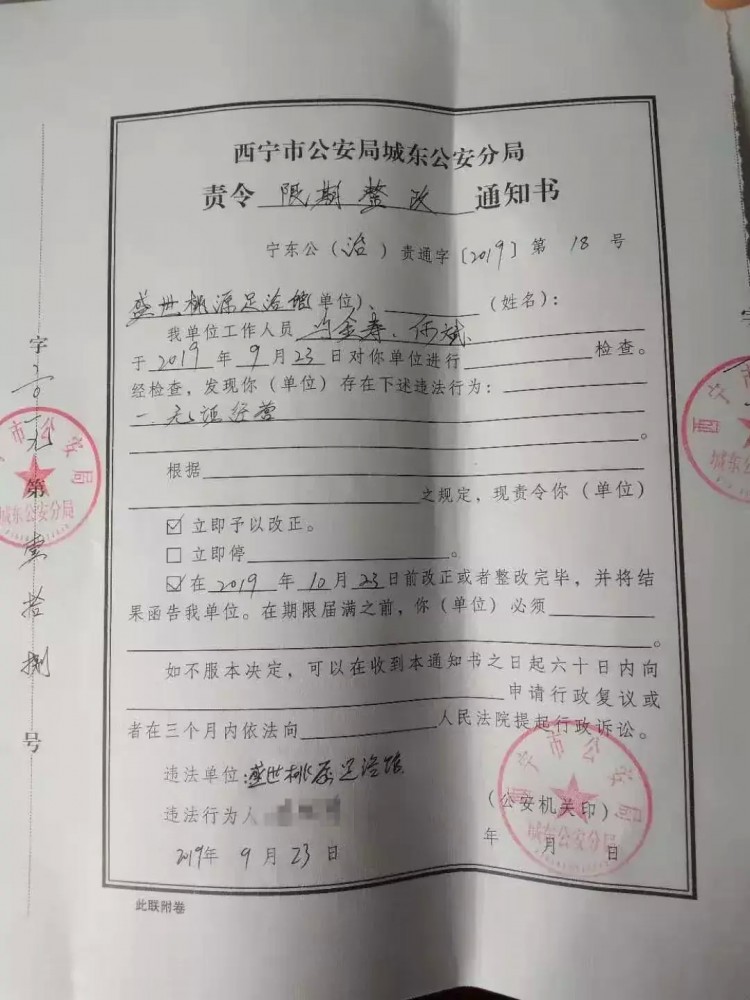 西宁市公安局城东公安分局
责令 限期整改 通知书
宁东公（治）责通字〔2019〕第 18 号
盛世桃源足浴馆（单位）、（姓名）：
我单位工作人员 马金寿、何斌
于 2019 年 9 月 23 日对你单位进行 检查。
经检查，发现你（单位）存在下述违法行为：
一、无 经营
。
根据
之规定，现责令你（单位）
☑ 立即予以改正。
□ 立即停 。
☑ 在 2019 年 10 月 23 日前改正或者整改完毕，并将结
果函告我单位。在期限届满之前，你（单位）必须
。
如不服本决定，可以在收到本通知书之日起六十日内向
申请行政复议或
者在三个月内依法向 人民法院提起行政诉讼。
违法单位：盛世桃源足浴馆
违法行为人
（公安机关印）
2019年 9 月 23 日
年 月 日
此联附卷
字
二〇一九
第
壹拾捌
号
市公安局
城东公安分局
西宁
城东公
西宁市公安局
城东公安分局